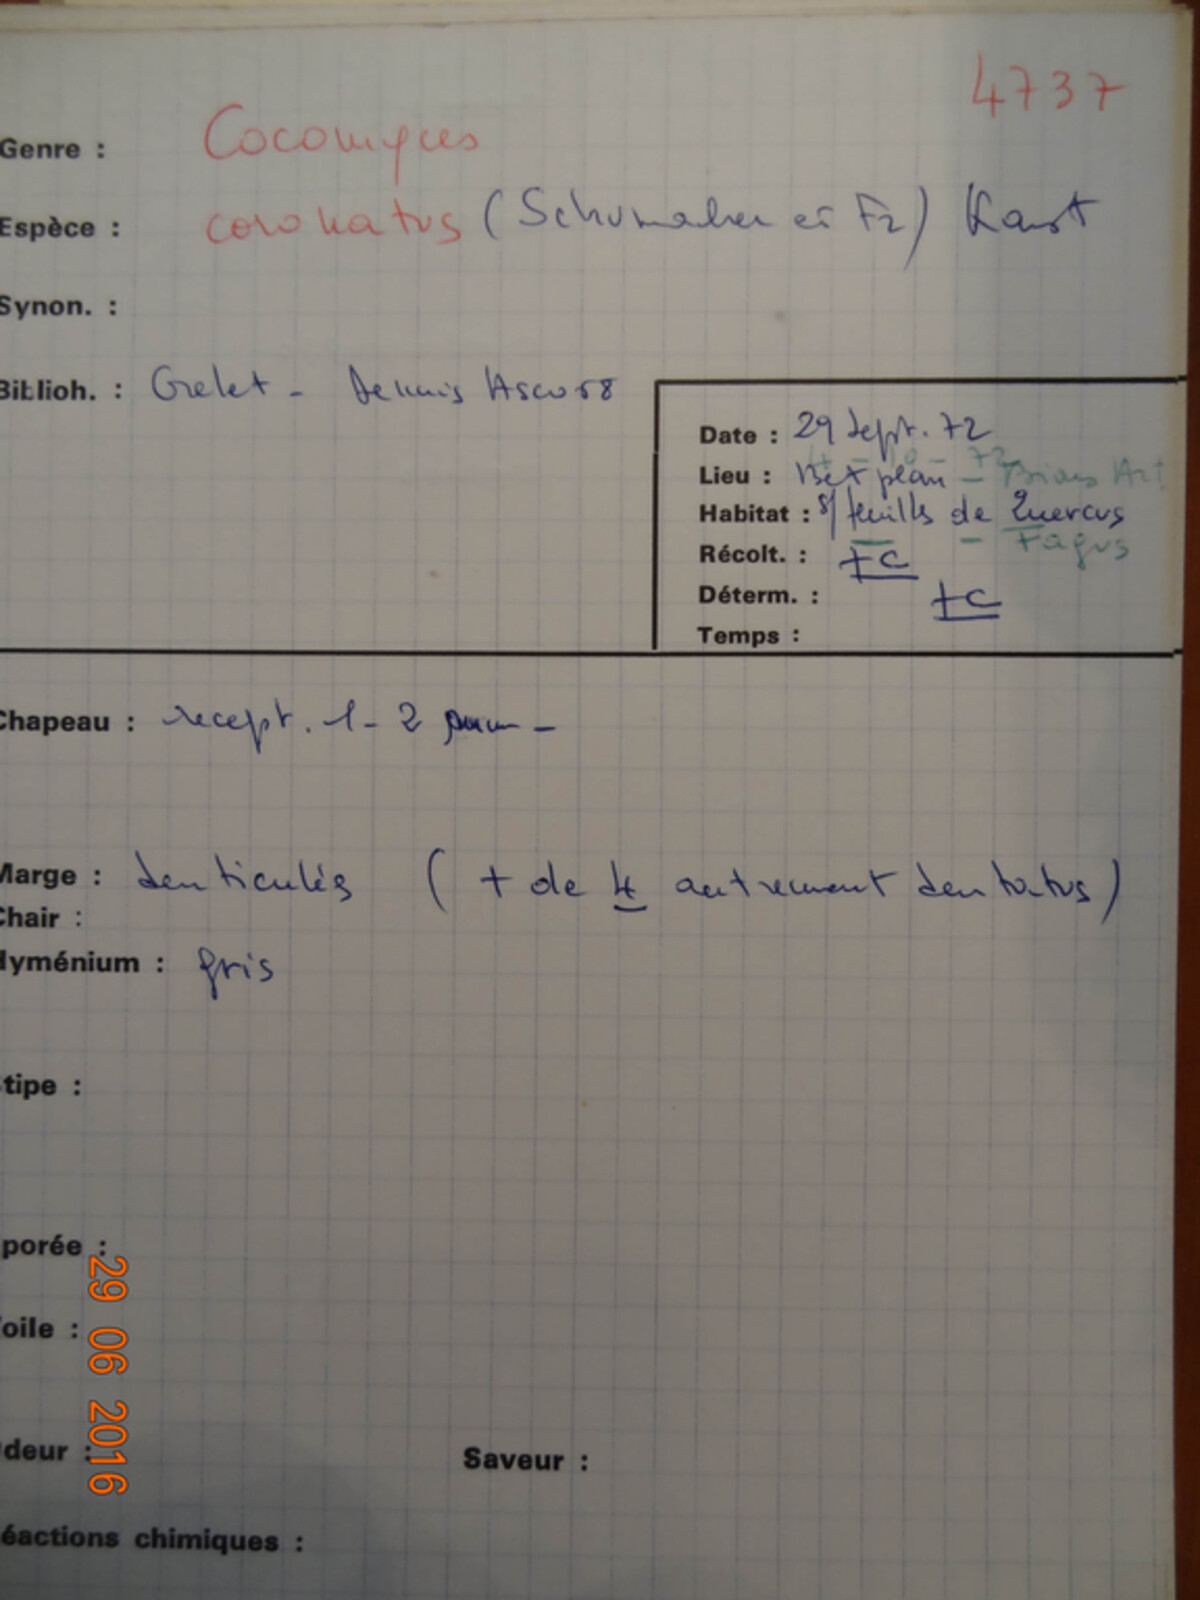 4737
Genre : Cocomyces
Espèce : coronatus (Schumacher et Fz) Karst
Synon. :
Biblioh. : Grelet - Dennis Asco 68
Date : 29 Sept. 72
10 - 72
Lieu : Bex plan -
Habitat : s/ feuilles de Quercus
- Fagus
Récolt. : FC
Déterm. : FC
Temps :
Chapeau : recept. 1-2 mm -
Marge : denticulés ( + de 4 autrement dentatus)
Chair :
Hyménium : gris
tipe :
porée :
oile :
deur :
Saveur :
éactions chimiques :
29 06 2016